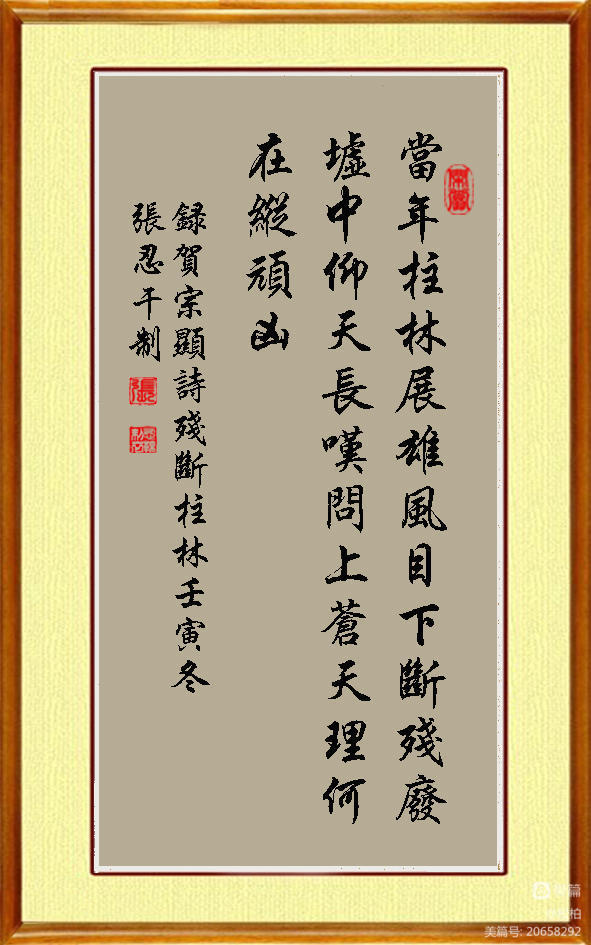 當年柱林展雄風目下斷殘廢
墟中仰天長嘆問上蒼天理何
在縱頑凶
録賀宗顯詩殘斷柱林壬寅冬
張忍干制
張
美篇号: 20658292